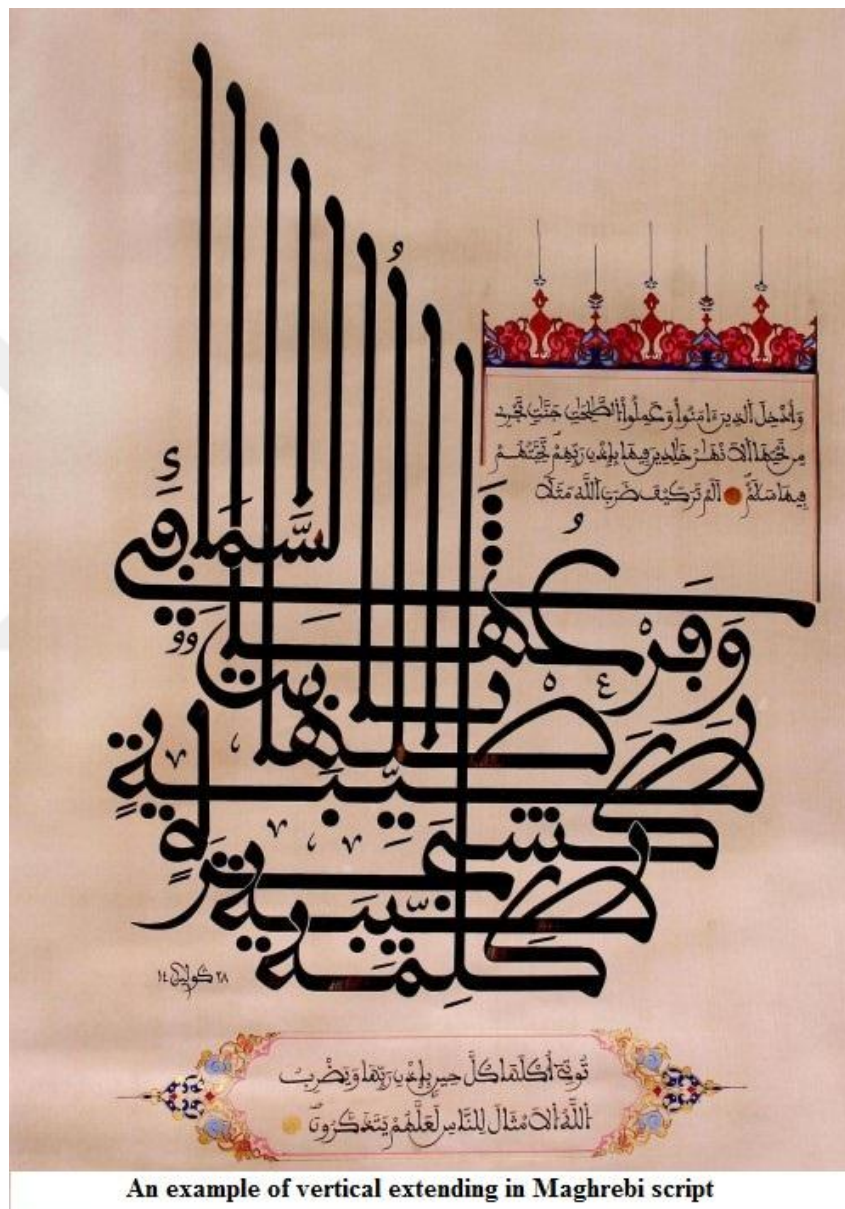 وَأُدْخِلَ ٱلذِينَ ءَامَنُواْ وَعَمِلُواْ ٱلصَّٰلِحَٰتِ جَنَّٰتٍ تَجْرِے
مِن تَحْتِهَا ٱلَانْهَٰرُ خَٰلِدِينَ فِيهَا بِإِذْنِ رَبِّهِمْ تَحِيَّتُهُمْ
فِيهَا سَلَٰمٌ أَلَمْ تَرَ كَيْفَ ضَرَبَ ٱللَّهُ مَثَلًا
كَلِمَةً طَيِّبَةً
كَشَجَرَةٍ
طَيِّبَةٍ
أَصْلُهَا ثَابِتٌ
وَفَرْعُهَا فِي السَّمَاءِ
تُوتِي أُكْلَهَا كُلَّ حِينٍ بِإِذْنِ رَبِّهَا وَيَضْرِبُ
ٱللَّهُ ٱلَامْثَالَ لِلنَّاسِ لَعَلَّهُمْ يَتَذَكَّرُونَ
An example of vertical extending in Maghrebi script